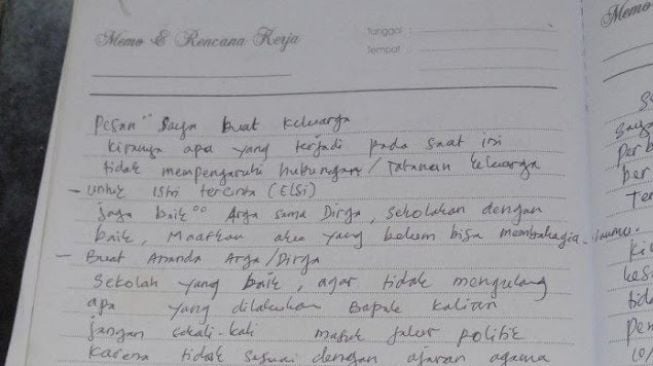 Memo & Rencana Kerja
Tanggal :
Tempat :
Pesan" saya buat keluarga
kiranya apa yang terjadi pada saat ini
tidak mempengaruhi hubungan / Tatanan keluarga
- untuk Istri tercinta (ELSi)
jaga baik" Arga sama Dirga, sekolahan dengan
baik, Maafkan aku yang belum bisa membahagia
- Buat Ananda Arga / Dirga
Sekolah yang baik, agar tidak mengulang
apa yang dilakukan Bapak kalian
jangan sekali-kali masuk jalur politik
karena tidak sesuai dengan ajaran agama
Memo